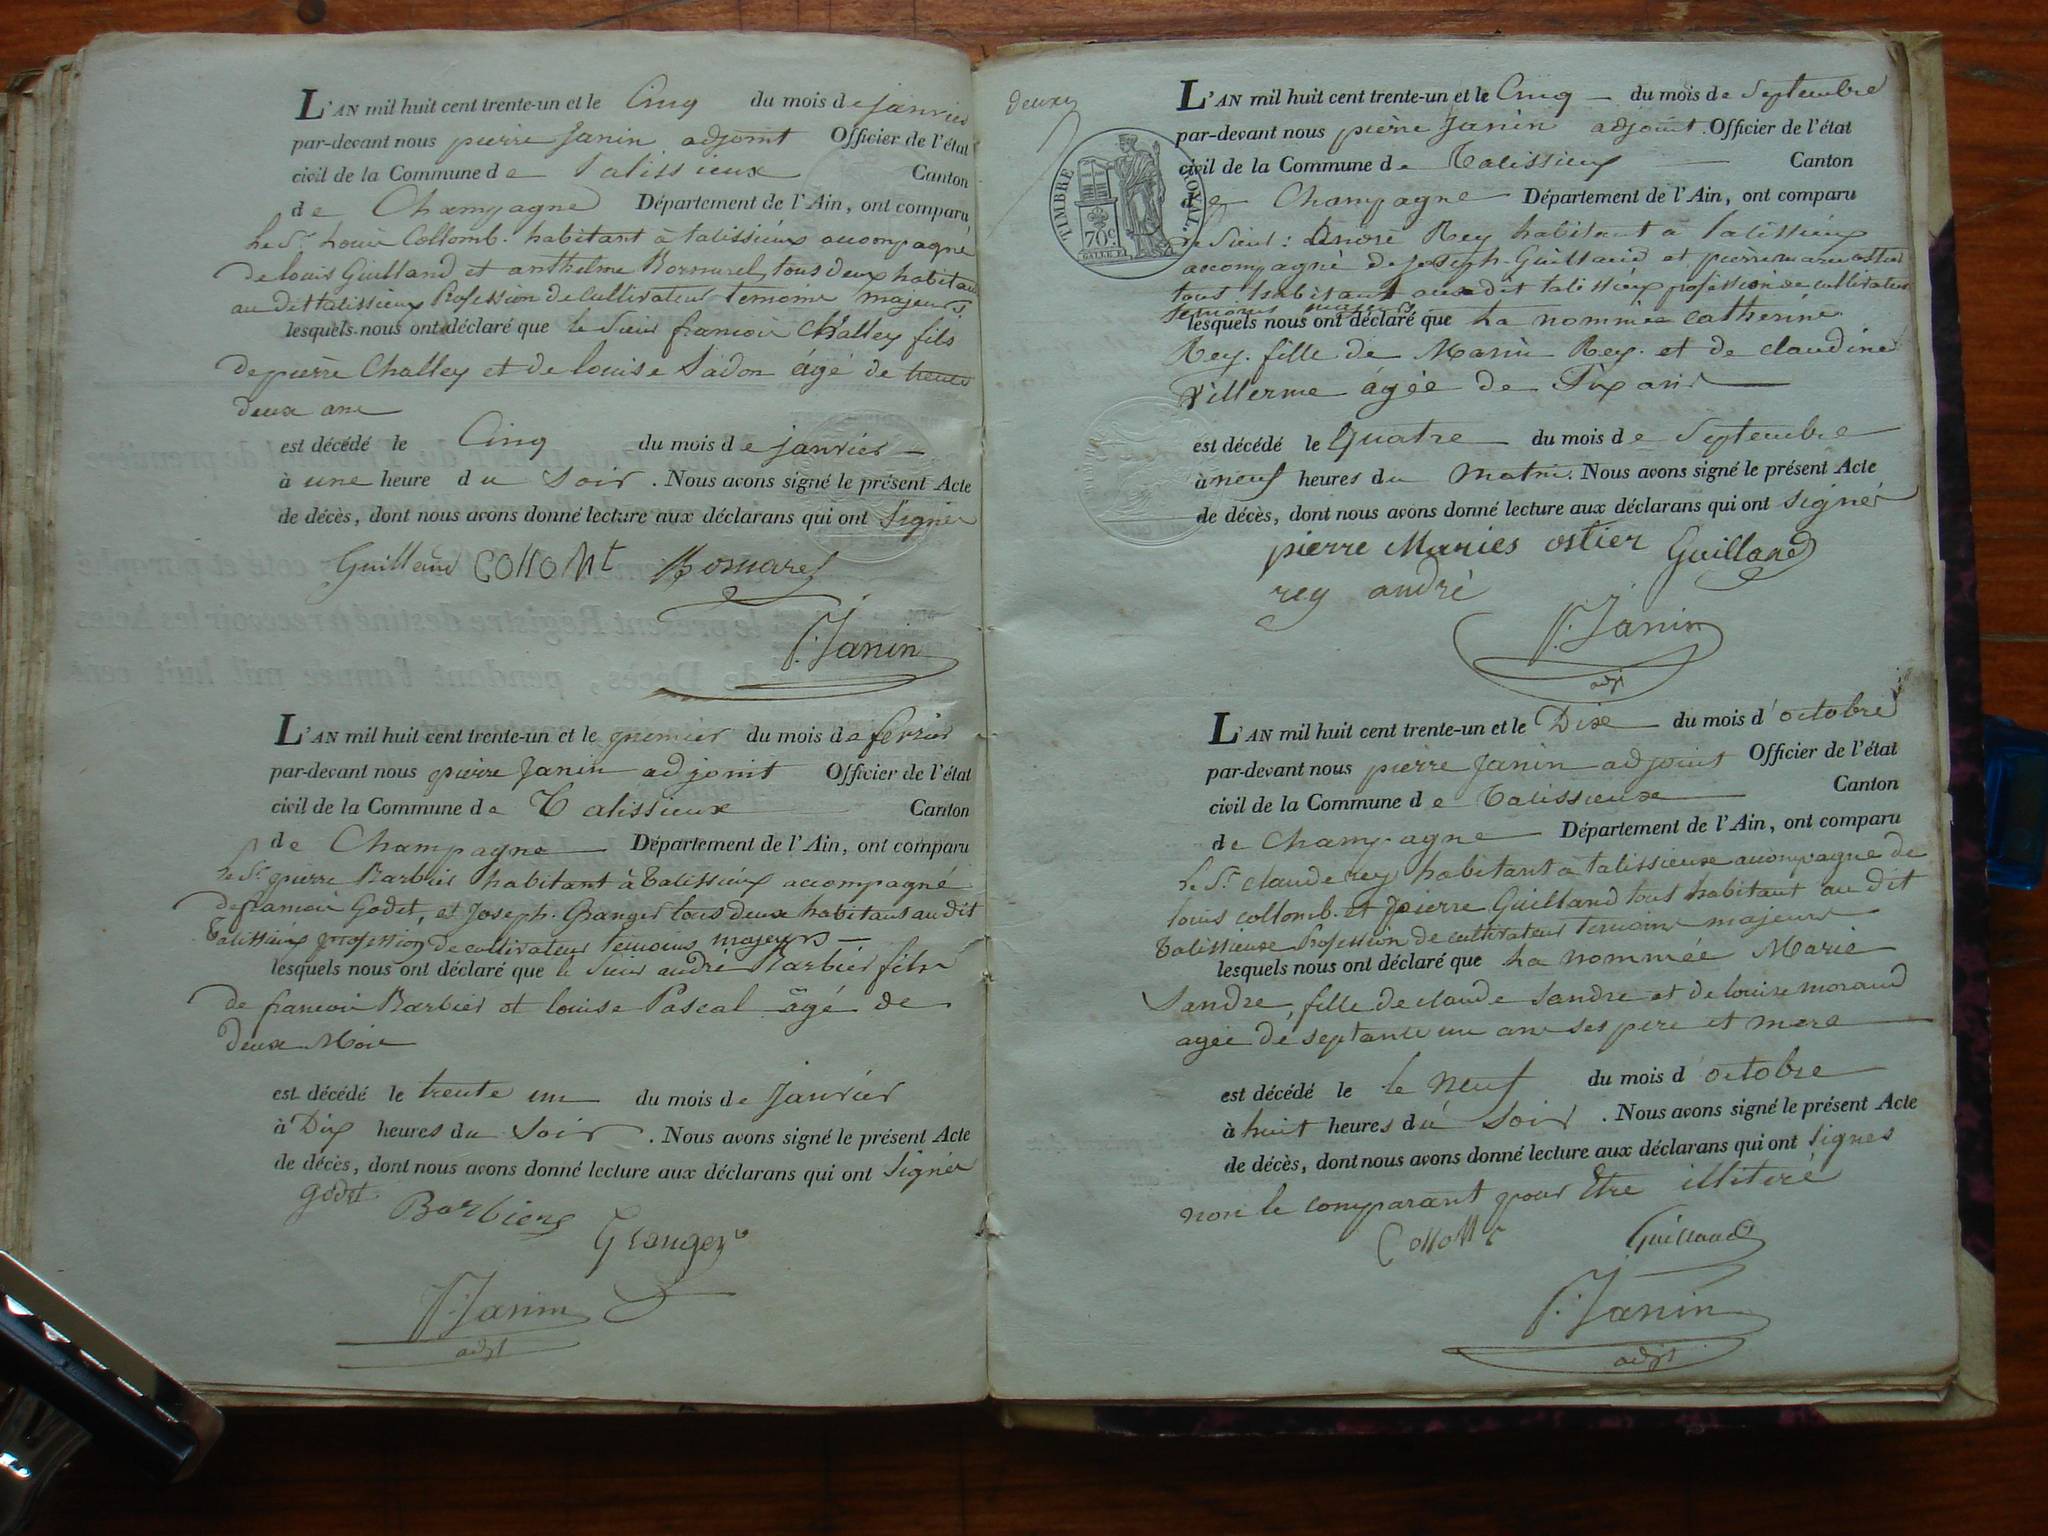 L'AN mil huit cent trente-un et le Cinq du mois de janvier
par-devant nous pierre Janin adjoint Officier de l'état
civil de la Commune de Talissieux Canton
de Champagne Département de l'Ain, ont comparu
le Sr. Louis Collomb. habitant à talissieux accompagné
de louis Guilland et anthelme Bornarel, tous deux habitant
au dit talissieux Profession de Cultivateur temoins majeurs.
lesquels nous ont déclaré que le Sieur francois Challey fils
de pierre Challey et de louise Sadon âgé de trente
deux ans
est décédé le Cinq du mois de janvier
à une heure du Soir. Nous avons signé le présent Acte
de décès, dont nous avons donné lecture aux déclarans qui ont Signés
Guilland Collomb Bornarel
P. Janin
L'AN mil huit cent trente-un et le premier du mois de fevrier
par-devant nous pierre Janin adjoint Officier de l'état
civil de la Commune de Talissieux Canton
de Champagne Département de l'Ain, ont comparu
le Sr. pierre Barbier habitant à Talissieux accompagné
de francois Godet, et Joseph. Granger tous deux habitant au dit
Talissieux profession de cultivateur temoins majeurs
lesquels nous ont déclaré que le Sieur andré Barbier fils
de francois Barbier et louise Pascal âgé de
deux Mois
est décédé le trente un du mois de Janvier
à Dix heures du Soir. Nous avons signé le présent Acte
de décès, dont nous avons donné lecture aux déclarans qui ont Signés
godet Barbier Granger
P. Janin
adjt
deux
TIMBRE ROYAL.
70c
L'AN mil huit cent trente-un et le Cinq du mois de Septembre
par-devant nous pierre Janin adjoint. Officier de l'état
civil de la Commune de Talissieux Canton
de Champagne Département de l'Ain, ont comparu
le Sieur: André Rey habitant à Talissieux
accompagné de joseph Guilland et pierre marie ostier
tous habitant audit talissieux profession de cultivateur
temoins majeurs
lesquels nous ont déclaré que la nommée catherine
Rey. fille de Marin Rey. et de claudine
Villerme âgée de Six ans
est décédé le Quatre du mois de Septembre
à neuf heures du matin. Nous avons signé le présent Acte
de décès, dont nous avons donné lecture aux déclarans qui ont signés
pierre Maries ostier Guilland
rey andré
P. Janin
adjt
L'AN mil huit cent trente-un et le Dix du mois d'octobre
par-devant nous pierre Janin adjoint Officier de l'état
civil de la Commune de Talissieux Canton
de Champagne Département de l'Ain, ont comparu
le Sr. claude rey habitant à talissieux accompagné de
louis collomb. et pierre Guilland tous habitant au dit
Talissieux Profession de cultivateur temoins majeurs
lesquels nous ont déclaré que la nommée Marie
Sandre, fille de claude Sandre et de louise moraud
agée de septante un ans ses pere et mere
est décédé le le neuf du mois d'octobre
à huit heures du Soir. Nous avons signé le présent Acte
de décès, dont nous avons donné lecture aux déclarans qui ont signés
non le comparant pour être illitéré
Collomb Guilland
P. Janin
adjt